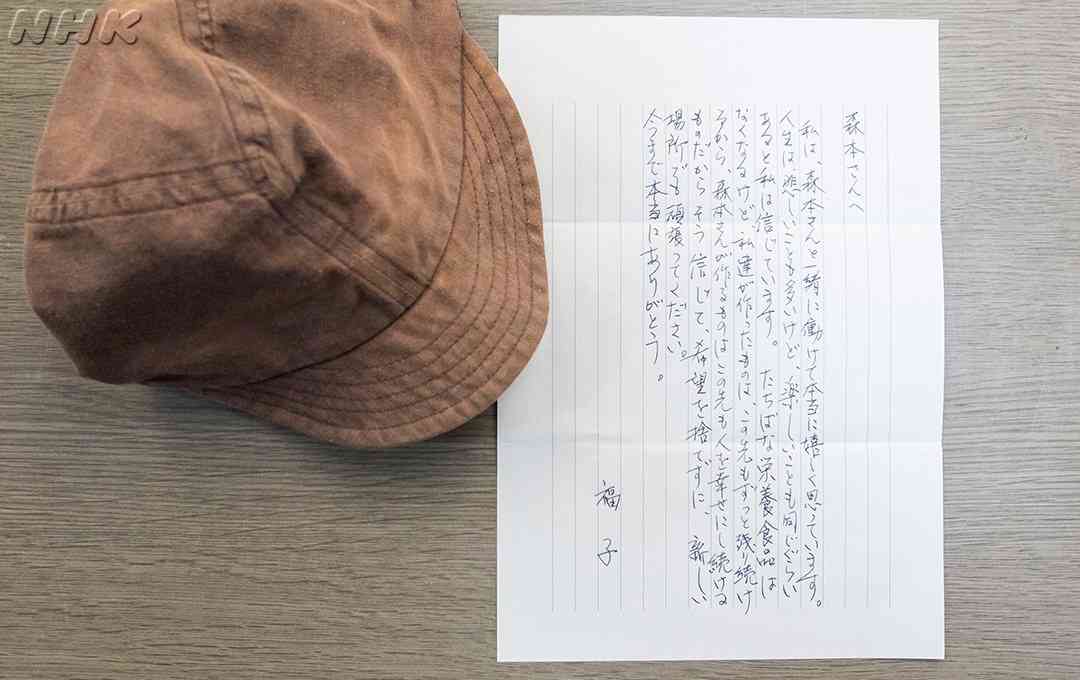 NHK
森本さんへ
私は、森本さんと一緒に働けて本当に嬉しく思っています。
人生は悲しいことも多いけど、楽しいことも同じぐらい
あると私は信じています。 たちばな栄養食品は
なくなるけど、私達が作ったものは、この先もずっと残り続け
るから、森本さんが作るものはこの先も人を幸せにし続ける
ものだから そう信じて、希望を捨てずに、新しい
場所でも頑張ってください。
今まで本当にありがとう。
福子